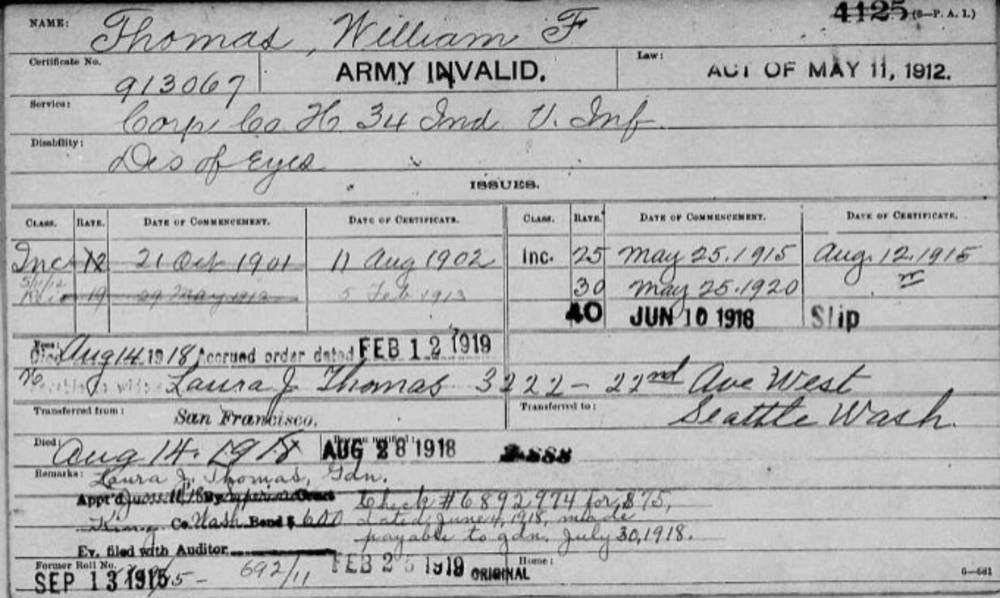 NAME: Thomas, William F 4125 (6—P. A. 1.)
Certificate No. 913067 ARMY INVALID. Law: ACT OF MAY 11, 1912.
Service: Corp Co. H 34 Ind V. Inf
Disability: Dis of Eyes
ISSUES.
CLASS. RATE. DATE OF COMMENCEMENT. DATE OF CERTIFICATE. CLASS. RATE. DATE OF COMMENCEMENT. DATE OF CERTIFICATE.
Inc 12 21 Oct 1901 11 Aug 1902 Inc. 25 May 25. 1915 Aug. 12. 1915
5/11/12 19 29 May 1912 5 Feb 1913 30 May 25. 1920 "
40 JUN 10 1918 Slip
Died Aug 14. 1918 Accrued order dated FEB 12 1919
Laura J Thomas 3222 - 22nd Ave West
Transferred from: San Francisco. Transferred to: Seattle Wash.
Died: Aug 14. 1918 AUG 28 1918
Remarks: Laura J. Thomas, Gdn.
Appt'd June 11, 18 By Superior Court Check #6892974 for $75,
King Co. Wash. Bond $ 600 dated June 4, 1918, made
payable to gdn. July 30, 1918.
Ev. filed with Auditor
Former Roll No. 692/11 FEB 25 1919 ORIGINAL Home: 6—681
SEP 13 1915